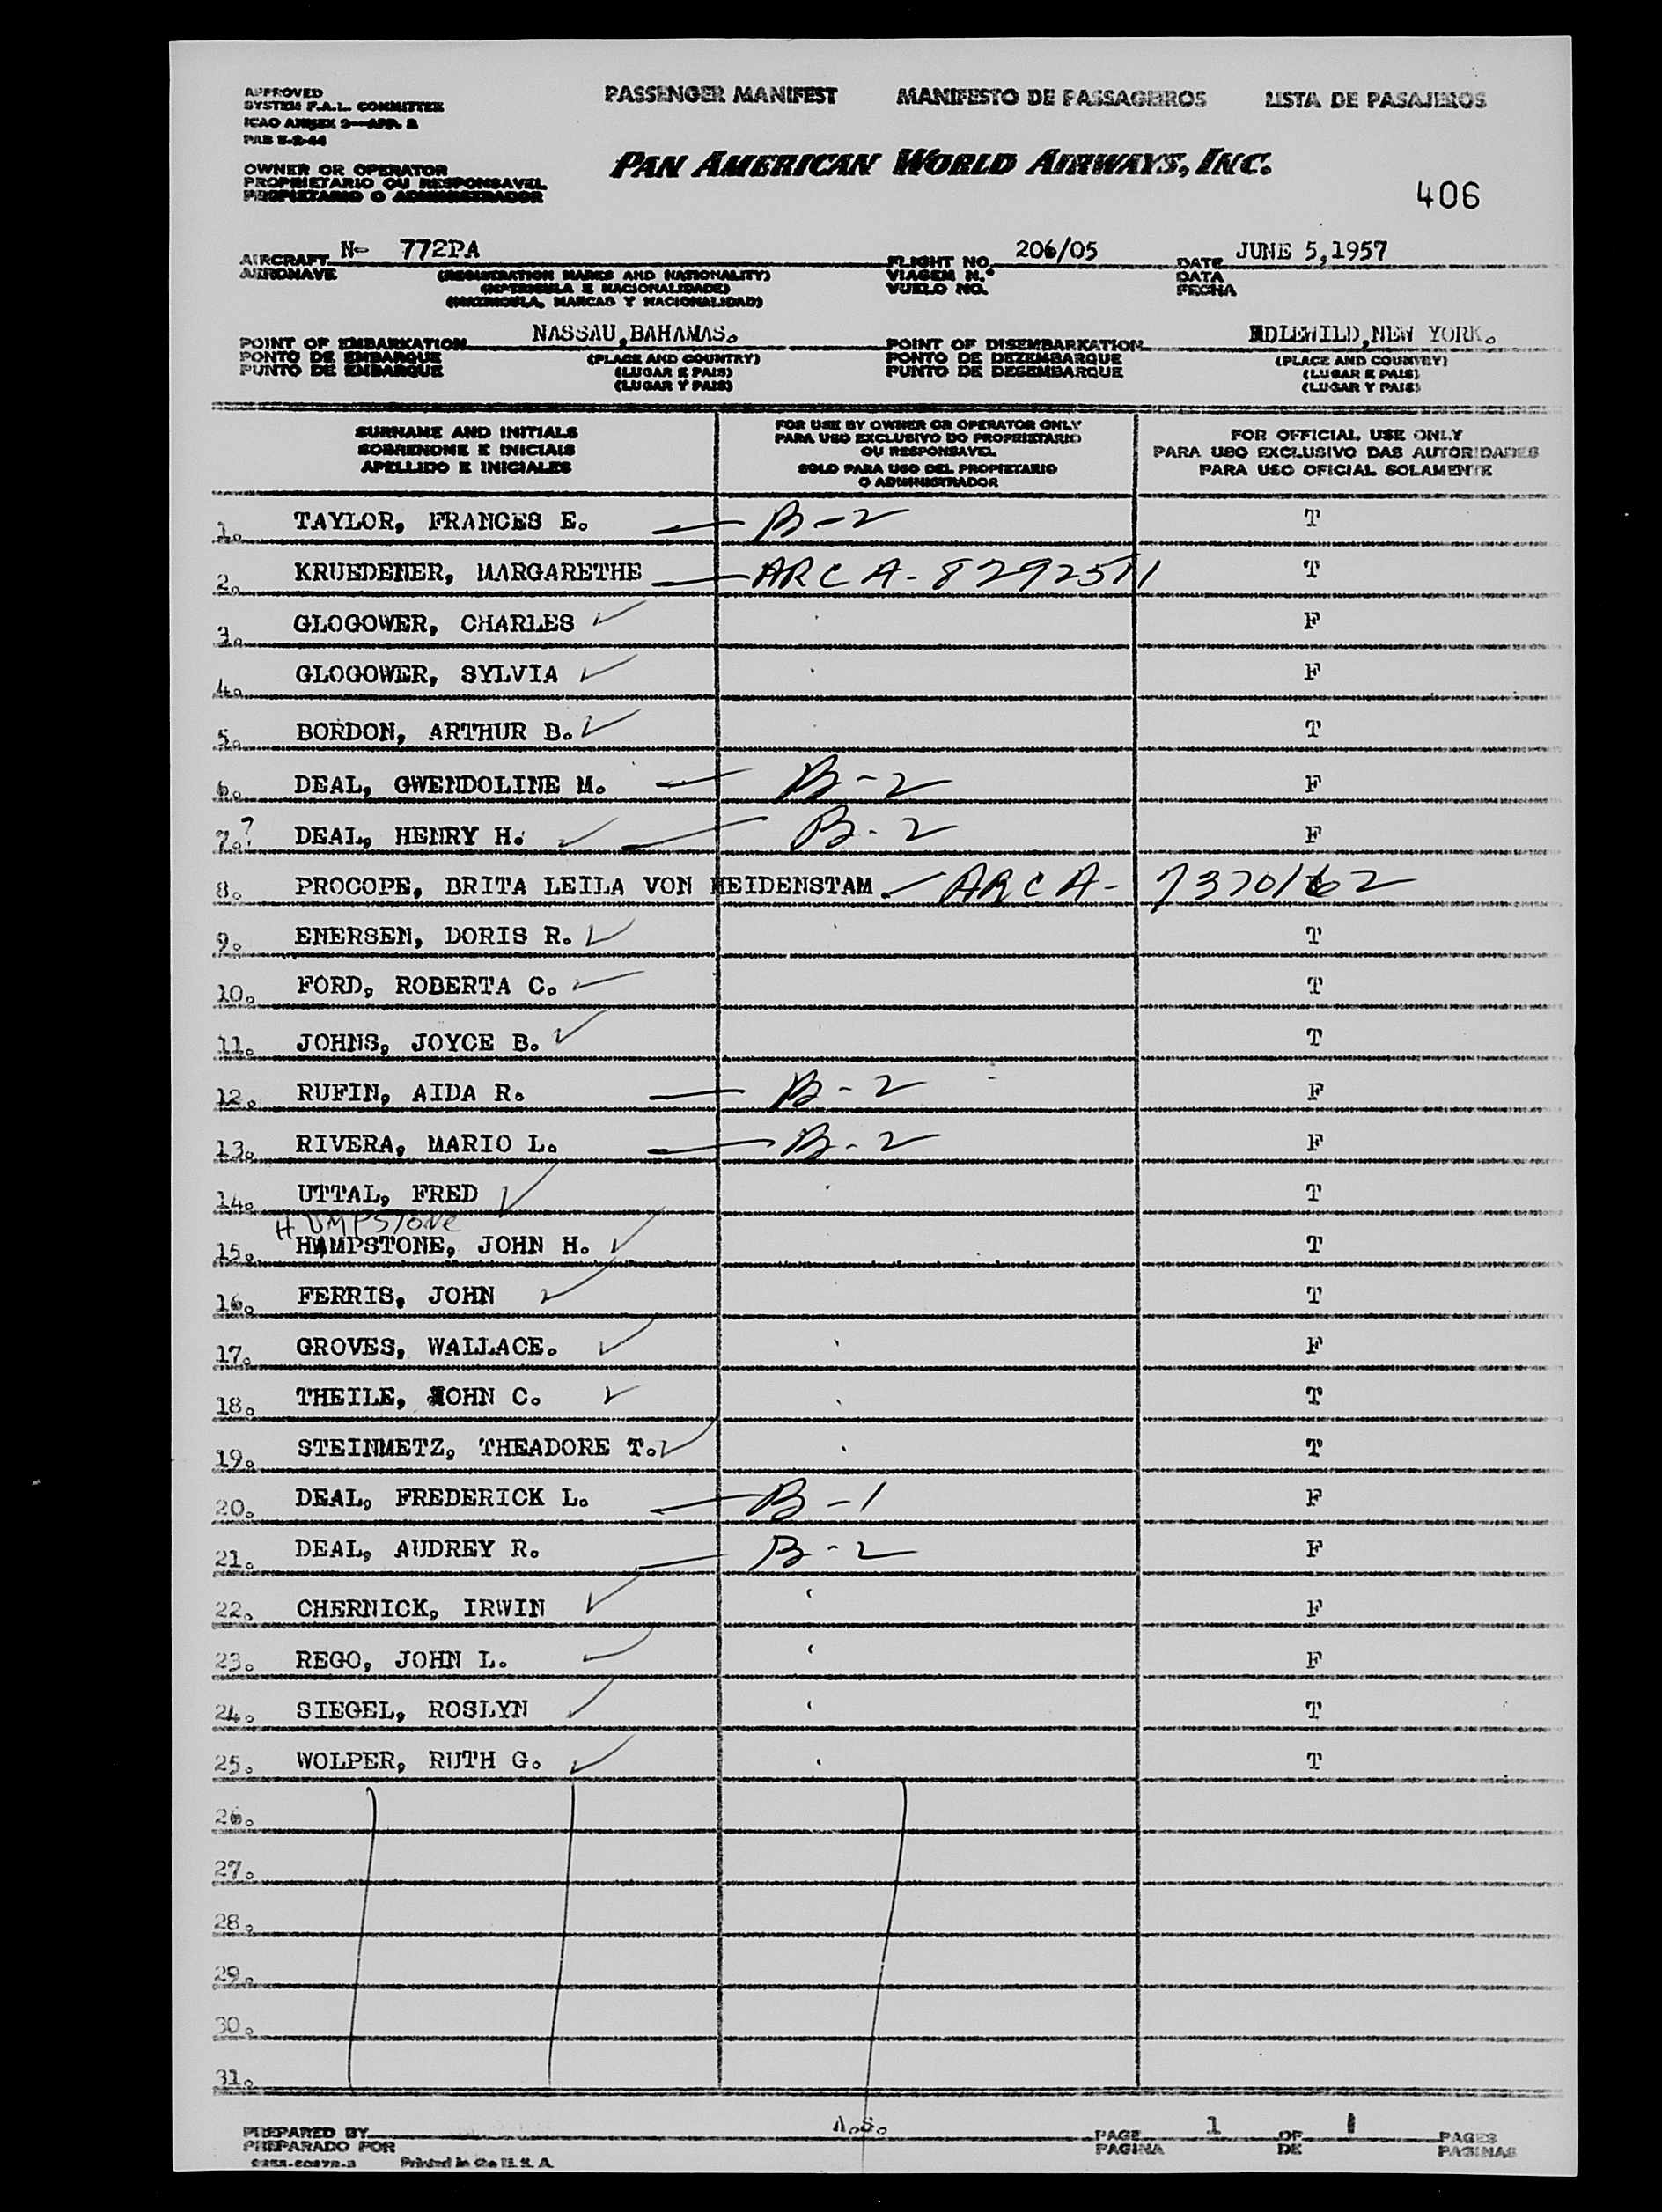 APPROVED
SYSTEM F.A.L. COMMITTEE
ICAO ANNEX 9—APP. B
PAB 5-2-44
PASSENGER MANIFEST MANIFESTO DE PASSAGEIROS LISTA DE PASAJEROS
OWNER OR OPERATOR
PROPRIETARIO OU RESPONSAVEL
PROPIETARIO O ADMINISTRADOR
PAN AMERICAN WORLD AIRWAYS, INC.
406
AIRCRAFT N- 772PA FLIGHT NO. 206/05 DATE JUNE 5,1957
AERONAVE (REGISTRATION MARKS AND NATIONALITY) VIAGEM N.º DATA
(MATRICULA E NACIONALIDADE) VUELO NO. FECHA
(MATRICULA, MARCAS Y NACIONALIDAD)
POINT OF EMBARKATION NASSAU,BAHAMAS. POINT OF DISEMBARKATION IDLEWILD,NEW YORK.
PONTO DE EMBARQUE (PLACE AND COUNTRY) PONTO DE DEZEMBARQUE (PLACE AND COUNTRY)
PUNTO DE EMBARQUE (LUGAR E PAIS) PUNTO DE DESEMBARQUE (LUGAR E PAIS)
(LUGAR Y PAIS) (LUGAR Y PAIS)
SURNAME AND INITIALS
SOBRENOME E INICIAIS
APELLIDO E INICIALES
FOR USE BY OWNER OR OPERATOR ONLY
PARA USO EXCLUSIVO DO PROPRIETARIO
OU RESPONSAVEL
SOLO PARA USO DEL PROPIETARIO
O ADMINISTRADOR
FOR OFFICIAL USE ONLY
PARA USO EXCLUSIVO DAS AUTORIDADES
PARA USO OFICIAL SOLAMENTE
1. TAYLOR, FRANCES E. — B-2 T
2. KRUEDENER, MARGARETHE — ARC A-8292511 T
3. GLOGOWER, CHARLES ✓ F
4. GLOGOWER, SYLVIA ✓ F
5. BORDON, ARTHUR B. ✓ T
6. DEAL, GWENDOLINE M. — B-2 F
7.? DEAL, HENRY H. ✓ — B-2 F
8. PROCOPE, BRITA LEILA VON HEIDENSTAM. ✓ ARC A- 7370162
9. ENERSEN, DORIS R. ✓ T
10. FORD, ROBERTA C. ✓ T
11. JOHNS, JOYCE B. ✓ T
12. RUFIN, AIDA R. — B-2 F
13. RIVERA, MARIO L. — B-2 F
14. UTTAL, FRED ✓ T
HUMPSTONE
15. HAMPSTONE, JOHN H. ✓ T
16. FERRIS, JOHN ✓ T
17. GROVES, WALLACE. ✓ F
18. THEILE, JOHN C. ✓ T
19. STEINMETZ, THEADORE T. ✓ T
20. DEAL, FREDERICK L. — B-1 F
21. DEAL, AUDREY R. — B-2 F
22. CHERNICK, IRWIN ✓ F
23. REGO, JOHN L. ✓ F
24. SIEGEL, ROSLYN ✓ T
25. WOLPER, RUTH G. ✓ T
26.
27.
28.
29.
30.
31.
PREPARED BY A.S. PAGE 1 OF 1 PAGES
PREPARADO POR PAGINA DE PAGINAS
Printed in the U. S. A.